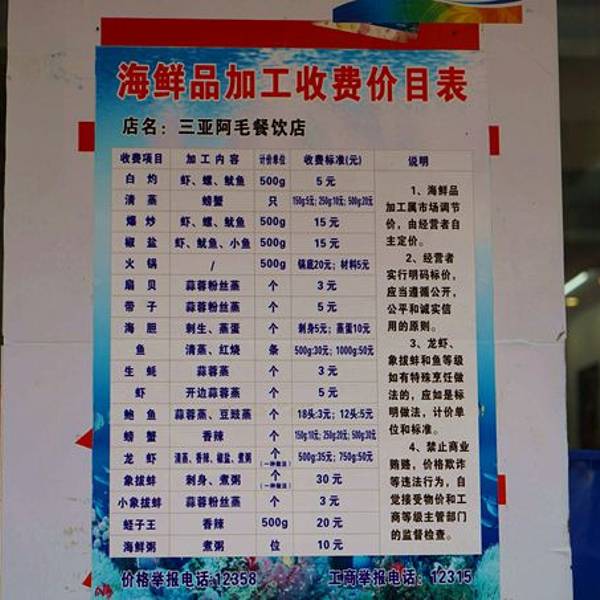 海鲜品加工收费价目表
店名：三亚阿毛餐饮店
收费项目 加工内容 计价单位 收费标准(元) 说明
白灼 虾、螺、鱿鱼 500g 5元
清蒸 螃蟹 只 150g:5元; 250g:10元; 500g:20元
爆炒 虾、螺、鱿鱼 500g 15元
椒盐 虾、鱿鱼、小鱼 500g 15元
火锅 / 500g 锅底20元；材料5元
扇贝 蒜蓉粉丝蒸 个 3元
带子 蒜蓉粉丝蒸 个 5元
海胆 刺生、蒸蛋 个 刺身5元；蒸蛋10元
鱼 清蒸、红烧 条 500g:30元；1000g:50元
生蚝 蒜蓉蒸 个 3元
虾 开边蒜蓉蒸 个 5元
鲍鱼 蒜蓉蒸、豆豉蒸 个 18头:3元；12头:5元
螃蟹 香辣 个 150g:10元; 250g:20元; 500g:30元
龙虾 清蒸、香辣、椒盐、煮粥 个(一种做法) 500g:35元；750g:50元
象拔蚌 刺身、煮粥 个(一种做法) 30元
小象拔蚌 蒜蓉粉丝蒸 个 3元
蛏子王 香辣 500g 20元
海鲜粥 煮粥 位 10元
1、海鲜品
加工属市场调节
价，由经营者自
主定价。
2、经营者
实行明码标价，
应当遵循公开，
公平和诚实信
用的原则。
3、龙虾、
象拔蚌和鱼等级
如有特殊烹饪做
法的，应如是标
明做法，计价单
位和标准。
4、禁止商业
贿赂，价格欺诈
等违法行为，自
觉接受物价和工
商等级主管部门
的监督检查。
价格举报电话:12358 工商举报电话：12315